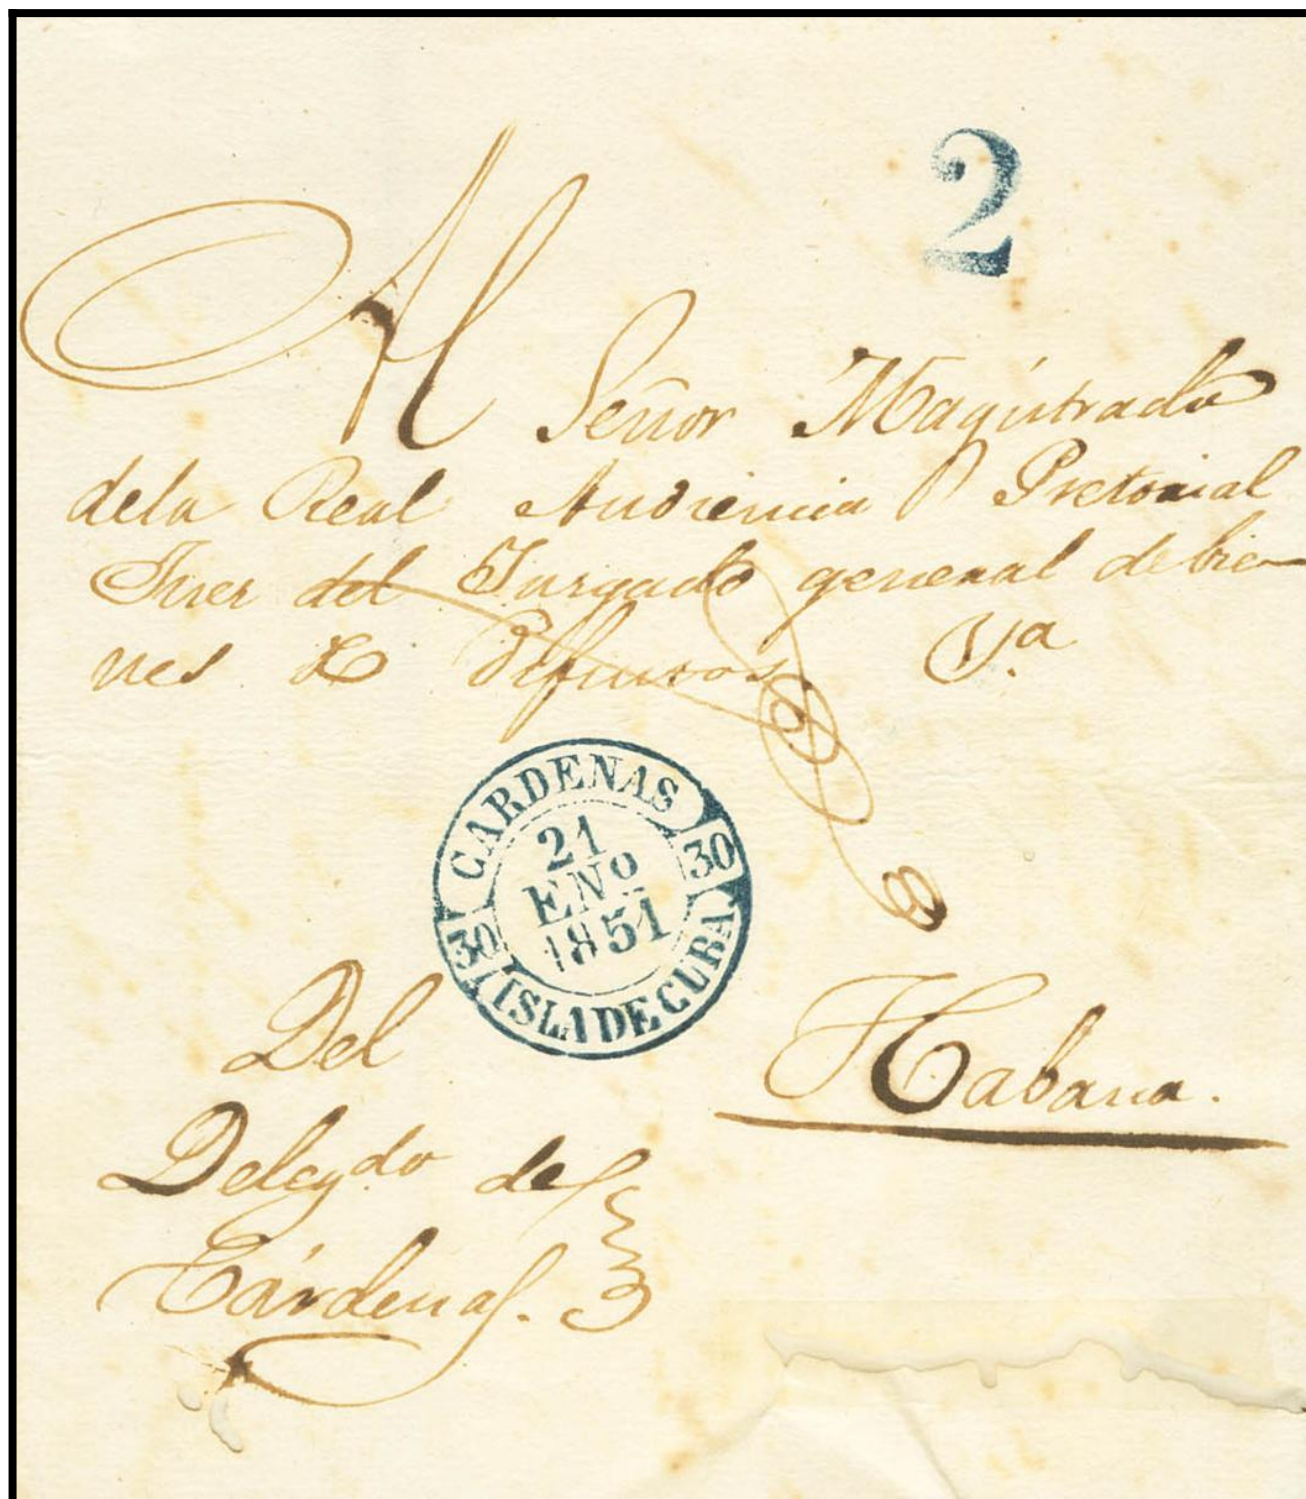 2
Al Señor Magistrado
de la Real Audiencia Pretorial
Juez del Juzgado general de bie-
nes de Difuntos Ya
CARDENAS
30 21 30
ENO
1851
ISLA DE CUBA
Del
Habana.
Delegdo de
Cárdenas.